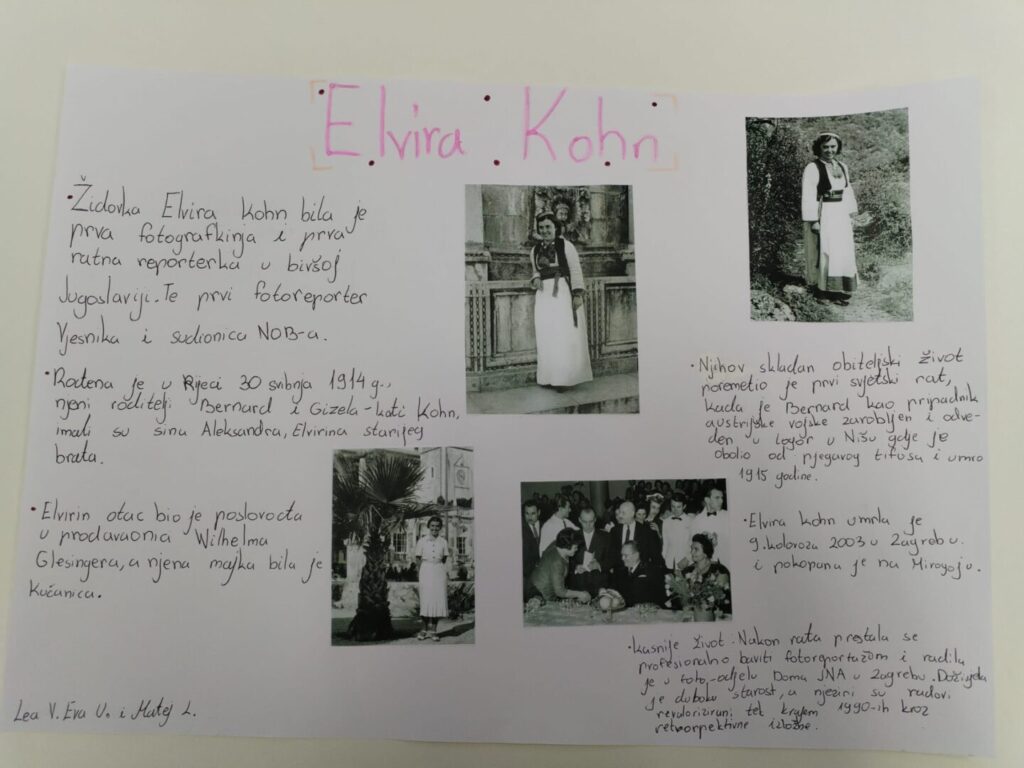 Elvira Kohn
• Židovka Elvira Kohn bila je
prva fotografkinja i prva
ratna reporterka u bivšoj
Jugoslaviji. Te prvi fotoreporter
Vjesnika i sudionica NOB-a.
• Rođena je u Rijeci 30 svibnja 1914 g.,
njeni roditelji Bernard i Gizela-kati Kohn,
imali su sina Aleksandra, Elvirina starijeg
brata.
• Elvirin otac bio je poslovođa
u prodavaonia Wilhelma
Glesingera, a njena majka bila je
Kućanica.
Lea V. Eva U. i Matej L.
• Njihov skladan obiteljski život
poremetio je prvi svjetski rat,
kada je Bernard kao pripadnik
austrijske vojske zarobljen i odve-
den u logor u Nišu gdje je
obolio od njegavog tifusa i umro
1915 godine.
• Elvira Kohn umrla je
9. kolovoza 2003 u Zagrebu.
i pokopana je na Mirogoju.
• kasnije život: Nakon rata prestala se
profesionalno baviti fotoreportažom i radila
je u foto-odjelu Doma JNA u Zagrebu. Doživjela
je duboku starost, a njezini su radovi
revalorizirani tek krajem 1990-ih kroz
retrorpektivne izložbe.